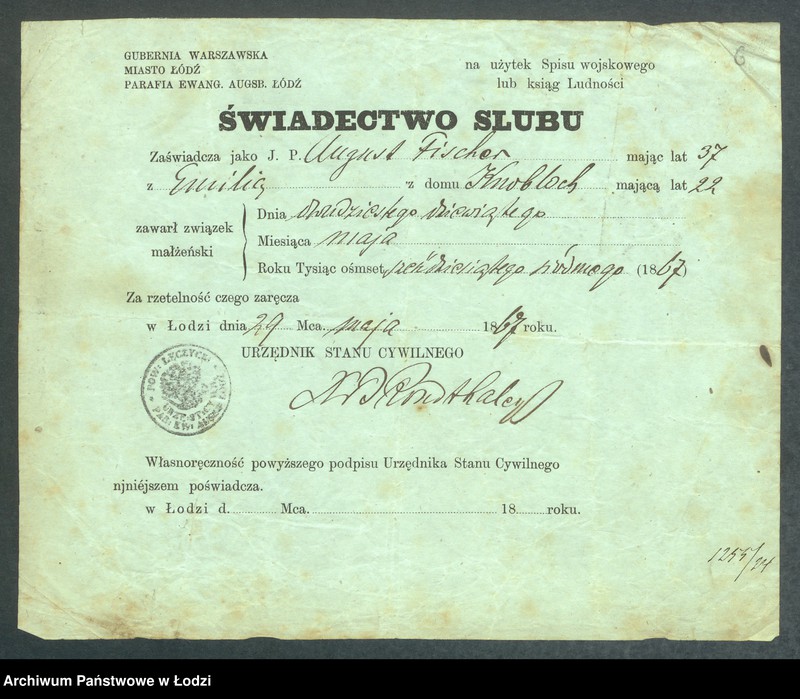 6
GUBERNIA WARSZAWSKA
MIASTO ŁÓDŹ
PARAFIA EWANG. AUGSB. ŁÓDŹ
na użytek Spisu wojskowego
lub ksiąg Ludności
ŚWIADECTWO SLUBU
Zaświadcza jako J. P. August Fischer mając lat 37
z Emilią z domu Knobloch mającą lat 22
zawarł związek
małżeński
Dnia dwudziestego dziewiątego
Miesiąca maja
Roku Tysiąc ośmset sześćdziesiątego siódmego (1867)
Za rzetelność czego zaręcza
w Łodzi dnia 29 Mca. maja 1867 roku.
URZĘDNIK STANU CYWILNEGO
Rondthaler
POW: ŁĘCZYCKI
Własnoręczność powyższego podpisu Urzędnika Stanu Cywilnego
njniéjszem poświadcza.
w Łodzi d. Mca. 18 roku.
1255/94
Archiwum Państwowe w Łodzi